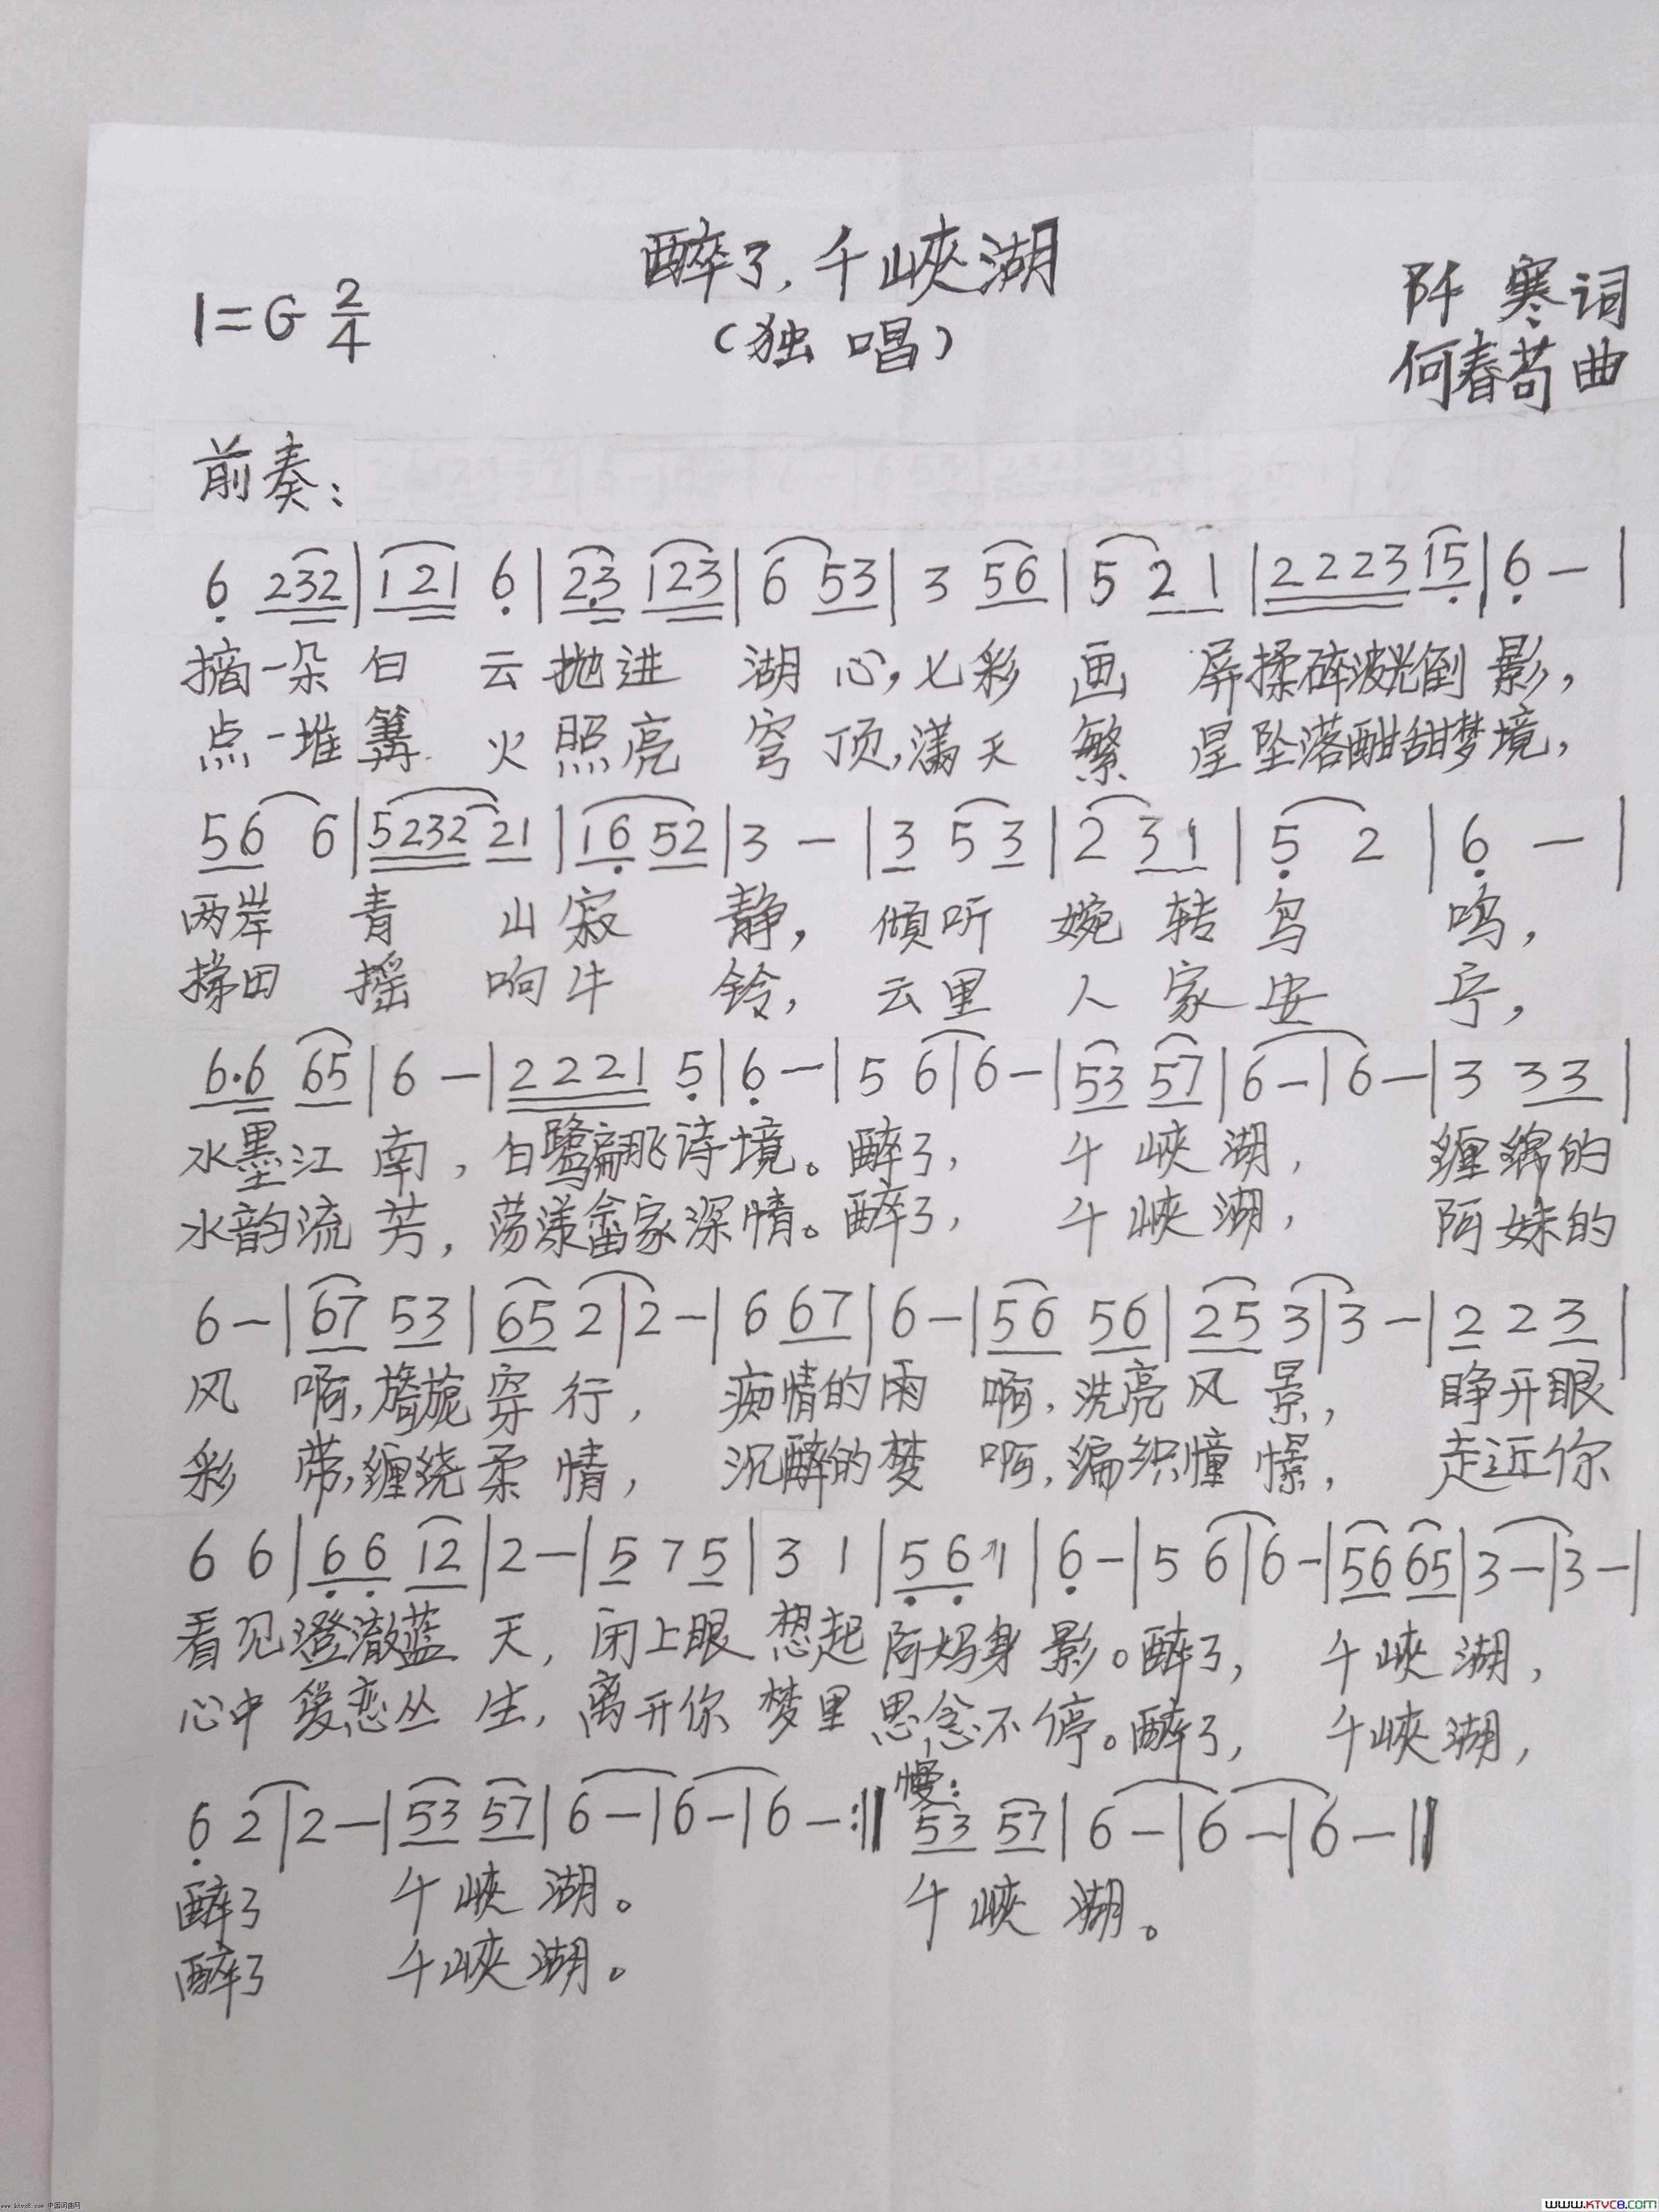 醉了，千峡湖
1=G 2/4
（独唱）
阡寒词
何春苟曲
前奏：
6 232|121 6|23 123|6 53|3 56|5 21|2223 15|6 - |
摘一朵白云抛进湖心，七彩画屏揉碎波光倒影，
点一堆篝火照亮穹顶，满天繁星坠落酣甜梦境，
56 6|5232 21|16 52|3 - |3 5 3|2 31|5 2|6 - |
两岸青山寂静，倾听婉转鸟鸣，
梯田摇响牛铃，云里人家安宁，
6·6 65|6 - |2221 5|6 - |5 6|6 - |53 57|6 - |6 - |3 33|
水墨江南，白鹭翩飞诗境。醉了，千峡湖，缠绵的
水韵流芳，荡漾畲家深情。醉了，千峡湖，阿妹的
6 - |67 53|65 2|2 - |6 67|6 - |56 56|25 3|3 - |2 2 3|
风啊，旖旎穿行，痴情的雨啊，洗亮风景，睁开眼
彩带，缠绕柔情，沉醉的梦啊，编织憧憬，走近你
6 6|66 12|2 - |5 7 5|3 1|56 1|6 - |5 6|6 - |56 65|3 - |3 - |
看见澄澈蓝天，闭上眼想起阿妈身影。醉了，千峡湖，
心中爱恋丛生，离开你梦里思念不停。醉了，千峡湖，
慢：
6 2|2 - |53 57|6 - |6 - |6 - :‖ 53 57|6 - |6 - |6 - ‖
醉了千峡湖。千峡湖。
醉了千峡湖。
www.ktvc8.com 中国词曲网
WWW.KTVC8.COM